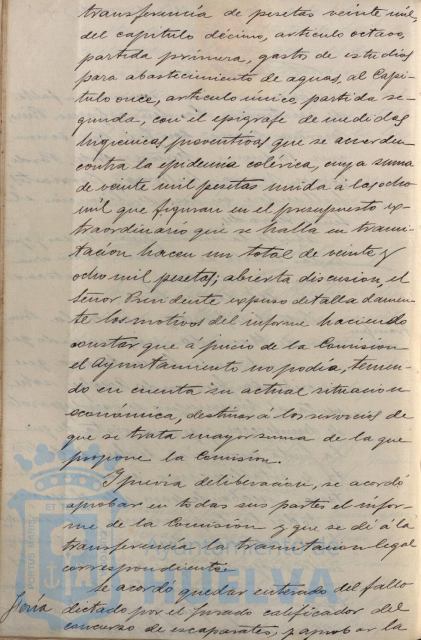 transferencia de pesetas veinte mil,
del capítulo décimo, artículo octavo,
partida primera, gasto de estudios
para abastecimiento de aguas, al Capí-
tulo once, artículo único, partida se-
gunda, con el epígrafe de medidas
higiénicas preventivas que se acuerden
contra la epidemia colérica, cuya suma
de veinte mil pesetas unida á las ocho
mil que figuran en el presupuesto ex-
traordinario que se halla en trami-
tación hacen un total de veinte y
ocho mil pesetas; abierta discusion, el
Señor Presidente expuso detalladamen-
te los motivos del informe haciendo
constar que á juicio de la Comision
el Ayuntamiento no podía, tenien-
do en cuenta su actual situacion
económica, destinar á los servicios de
que se trata mayor suma de la que
propone la Comisión.
Y previa deliberacion, se acordó
aprobar en todas sus partes el infor-
me de la Comision y que se dé á la
transferencia la tramitacion legal
correspondiente.
Se acordó quedar enterado del fallo
Feria
dictado por el Jurado calificador del
concurso de escaparates, y aprobar la
Ayuntamiento de
HUELVA
PORTUS MARIS
ET